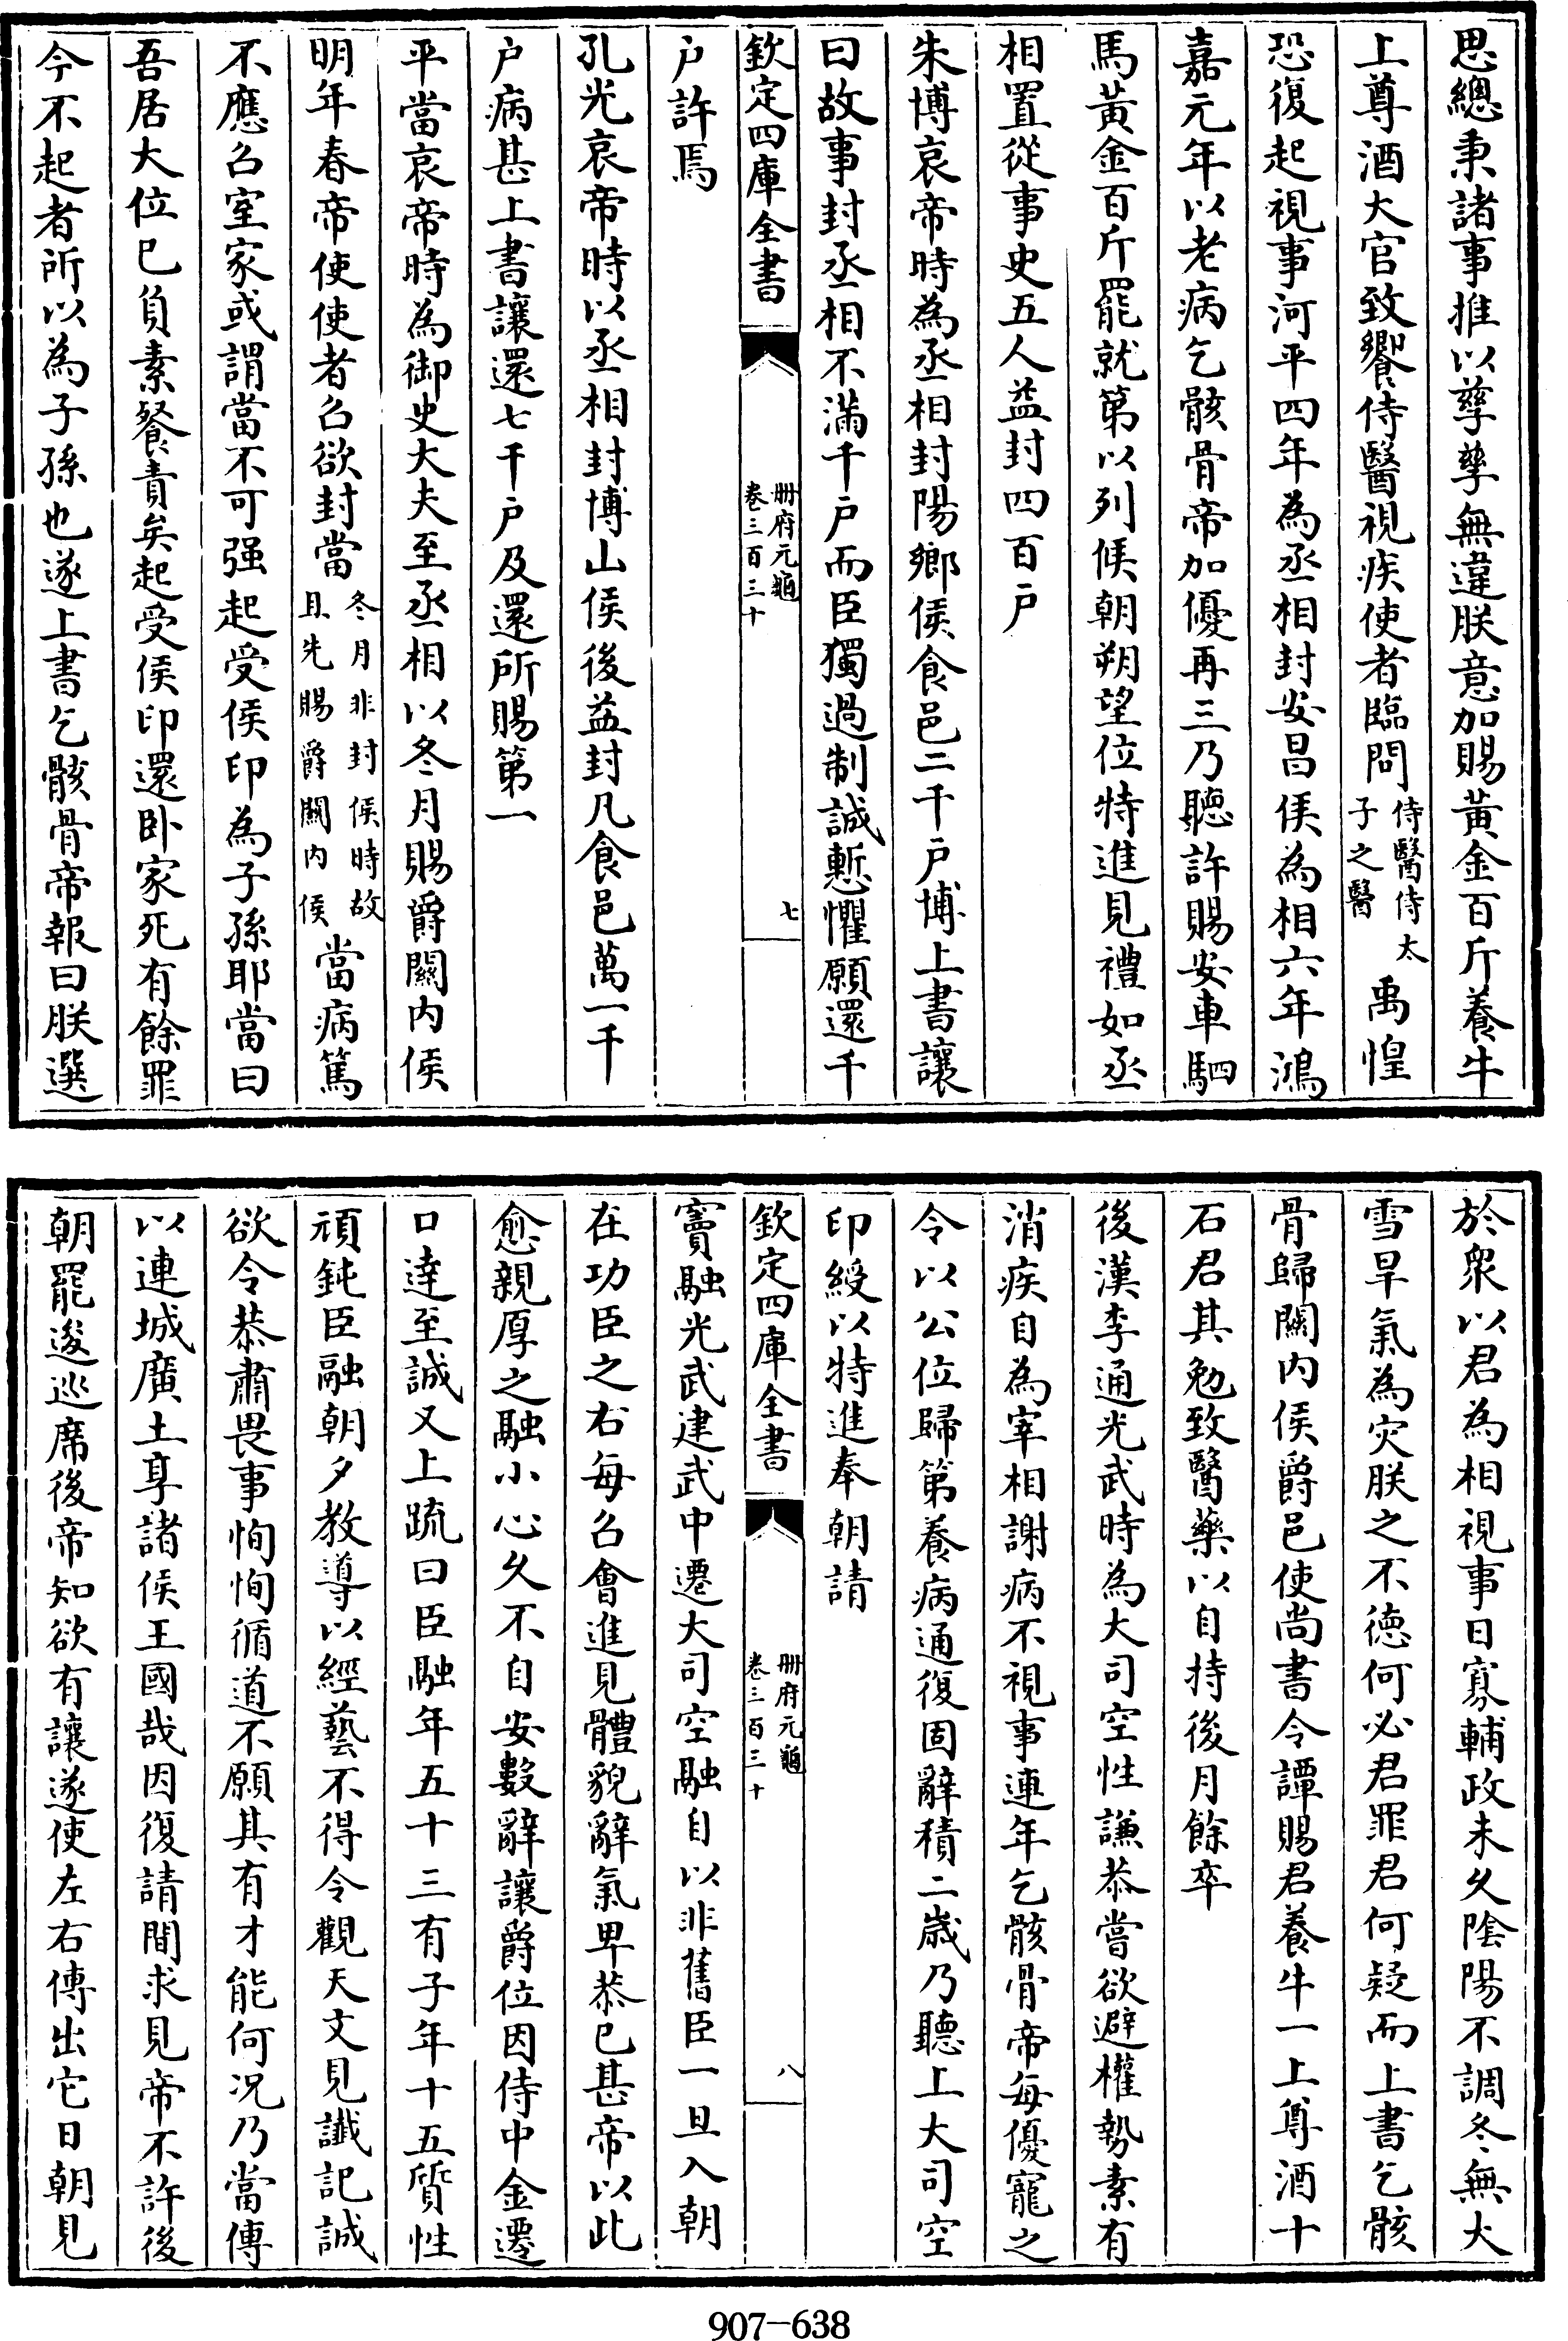 思總秉諸事推以孳孳無違朕意加賜黃金百斤養牛
上尊酒大官致饗侍醫視疾使者臨問侍醫侍太子之醫禹惶
恐復起視事河平四年為丞相封安昌侯為相六年鴻
嘉元年以老病乞骸骨帝加優再三乃聽許賜安車駟
馬黃金百斤罷就第以列侯朝朔望位特進見禮如丞
相置從事史五人益封四百戶
朱博哀帝時為丞相封陽鄉侯食邑二千戶博上書讓
曰故事封丞相不滿千戶而臣獨過制誠慙懼願還千
欽定四庫全書
冊府元龜
卷三百三十
七
戶許焉
孔光哀帝時以丞相封博山侯後益封凡食邑萬一千
戶病甚上書讓還七千戶及還所賜第一
平當哀帝時為御史大夫至丞相以冬月賜爵關內侯
明年春帝使使者召欲封當冬月非封侯時故且先賜爵關內侯當病篤
不應召室家或謂當不可强起受侯印為子孫耶當曰
吾居大位已負素餐責矣起受侯印還卧家死有餘罪
今不起者所以為子孫也遂上書乞骸骨帝報曰朕選
於衆以君為相視事日寡輔政未久陰陽不調冬無大
雪旱氣為灾朕之不德何必君罪君何疑而上書乞骸
骨歸關內侯爵邑使尚書令譚賜君養牛一上尊酒十
石君其勉致醫藥以自持後月餘卒
後漢李通光武時為大司空性謙恭嘗欲避權勢素有
消疾自為宰相謝病不視事連年乞骸骨帝每優寵之
令以公位歸第養病通復固辭積二歲乃聽上大司空
印綬以特進奉朝請
欽定四庫全書
冊府元龜
卷三百三十
八
竇融光武建武中遷大司空融自以非舊臣一旦入朝
在功臣之右每召會進見體貌辭氣卑恭已甚帝以此
愈親厚之融小心久不自安數辭讓爵位因侍中金遷
口達至誠又上疏曰臣融年五十三有子年十五質性
頑鈍臣融朝夕教導以經藝不得令觀天文見讖記誠
欲令恭肅畏事恂恂循道不願其有才能何況乃當傳
以連城廣土享諸侯王國哉因復請間求見帝不許後
朝罷逡巡席後帝知欲有讓遂使左右傳出它日朝見
907-638